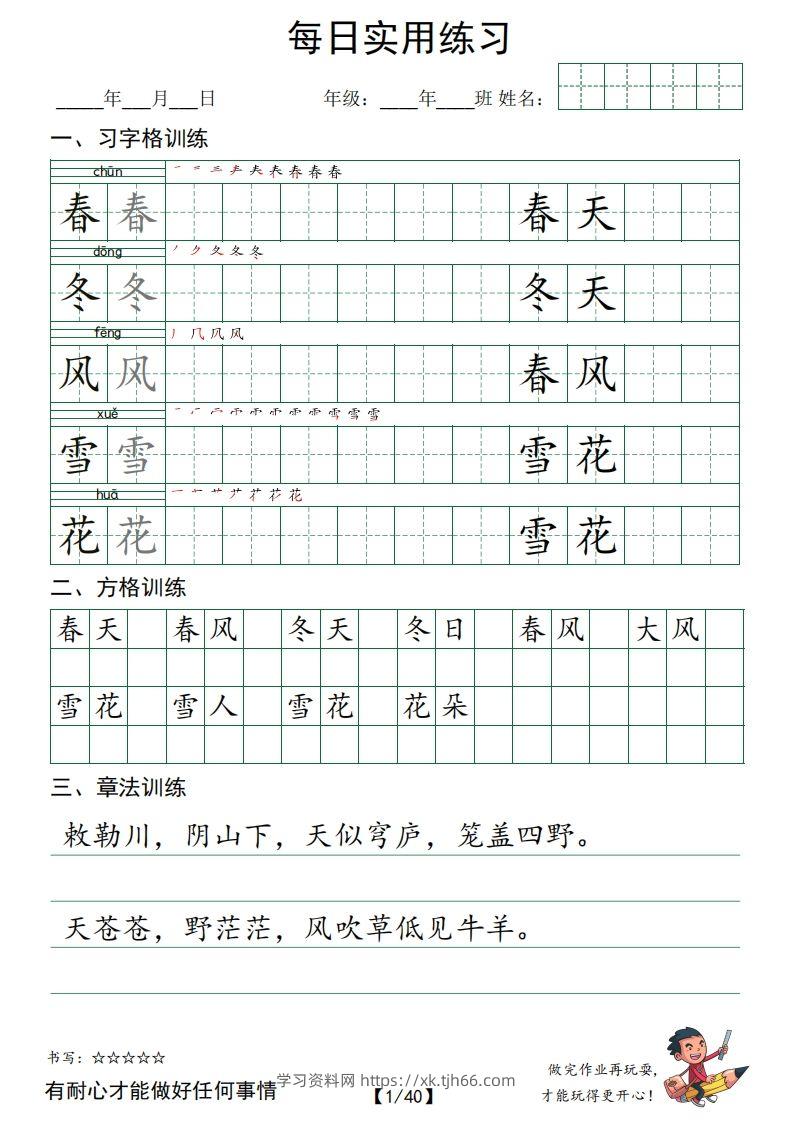 每日实用练习
_____年___月___日 年级：____年____班 姓名：
一、习字格训练
chūn
春 春 春 天
dōng
冬 冬 冬 天
fēng
风 风 春 风
xuě
雪 雪 雪 花
huā
花 花 雪 花
二、方格训练
春天 春风 冬天 冬日 春风 大风
雪花 雪人 雪花 花朵
三、章法训练
敕勒川，阴山下，天似穹庐，笼盖四野。
天苍苍，野茫茫，风吹草低见牛羊。
书写：☆☆☆☆☆
做完作业再玩耍，
有耐心才能做好任何事情
学习资料网 https://xk.tjh66.com
【1/40】
才能玩得更开心！